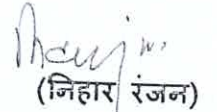 (निहार रंजन)